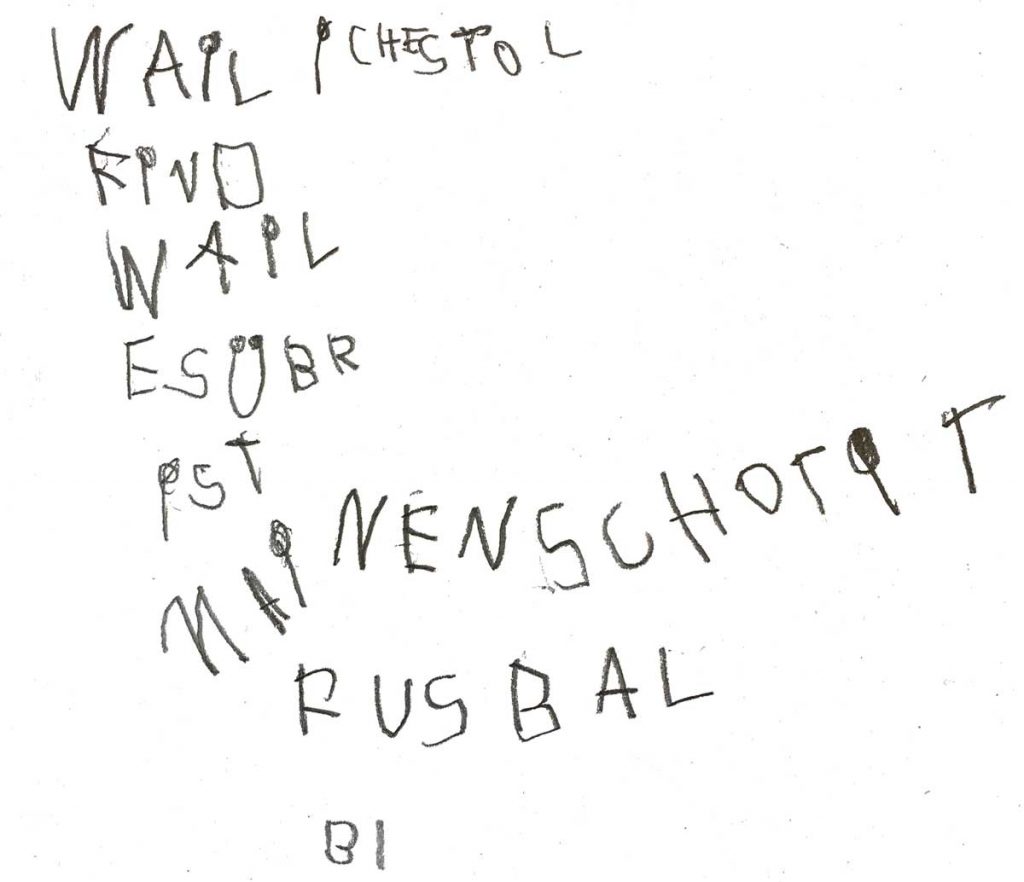 WAIL ICHESTOL
FIND
WAIL
ESÜBR
IST
MAINENSCHOTIT
FUSBAL
BI